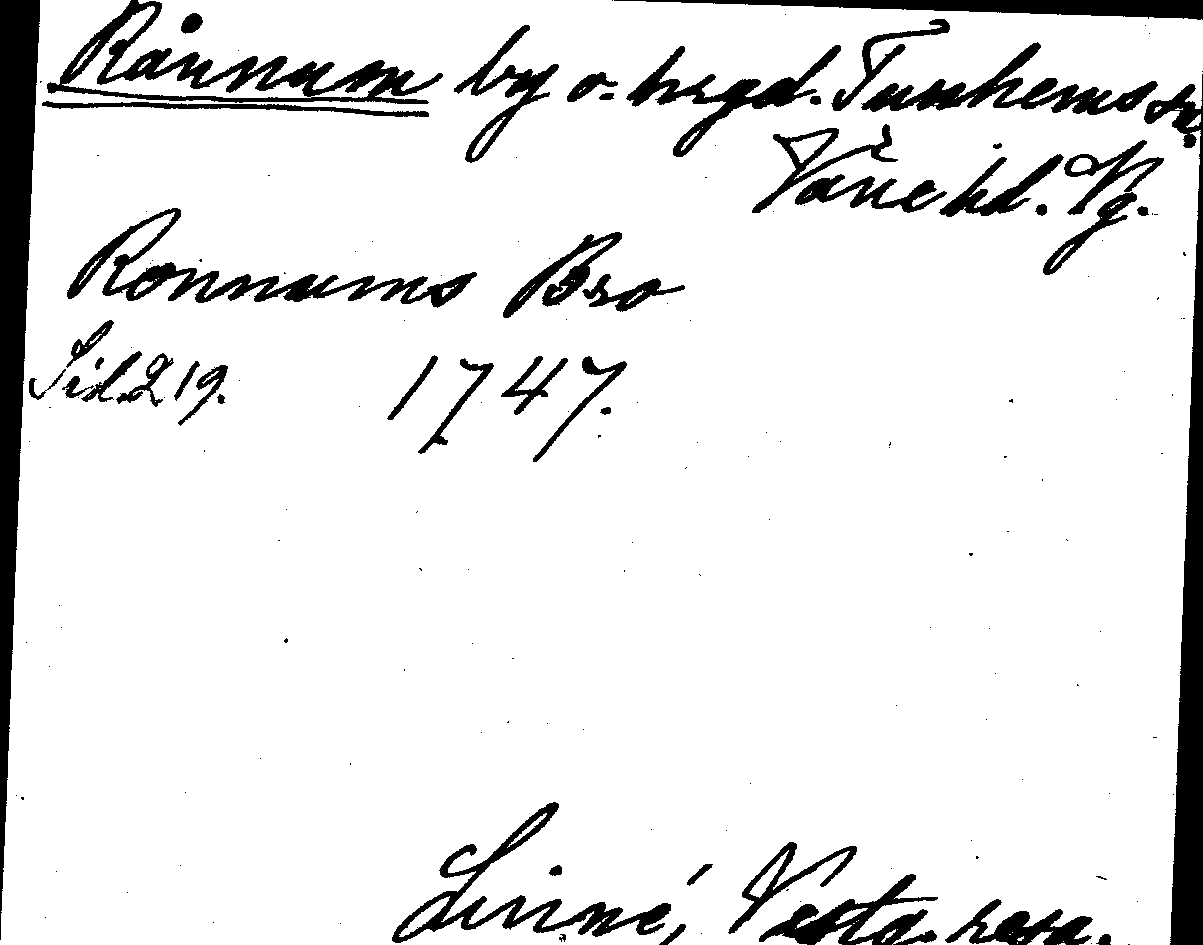 Rånnum by o. hrgd. Tunhems sn.
Väne hd. Vg.
Ronnums Bro
Sid. 219. 1747.
Linné, Vestg. resa.